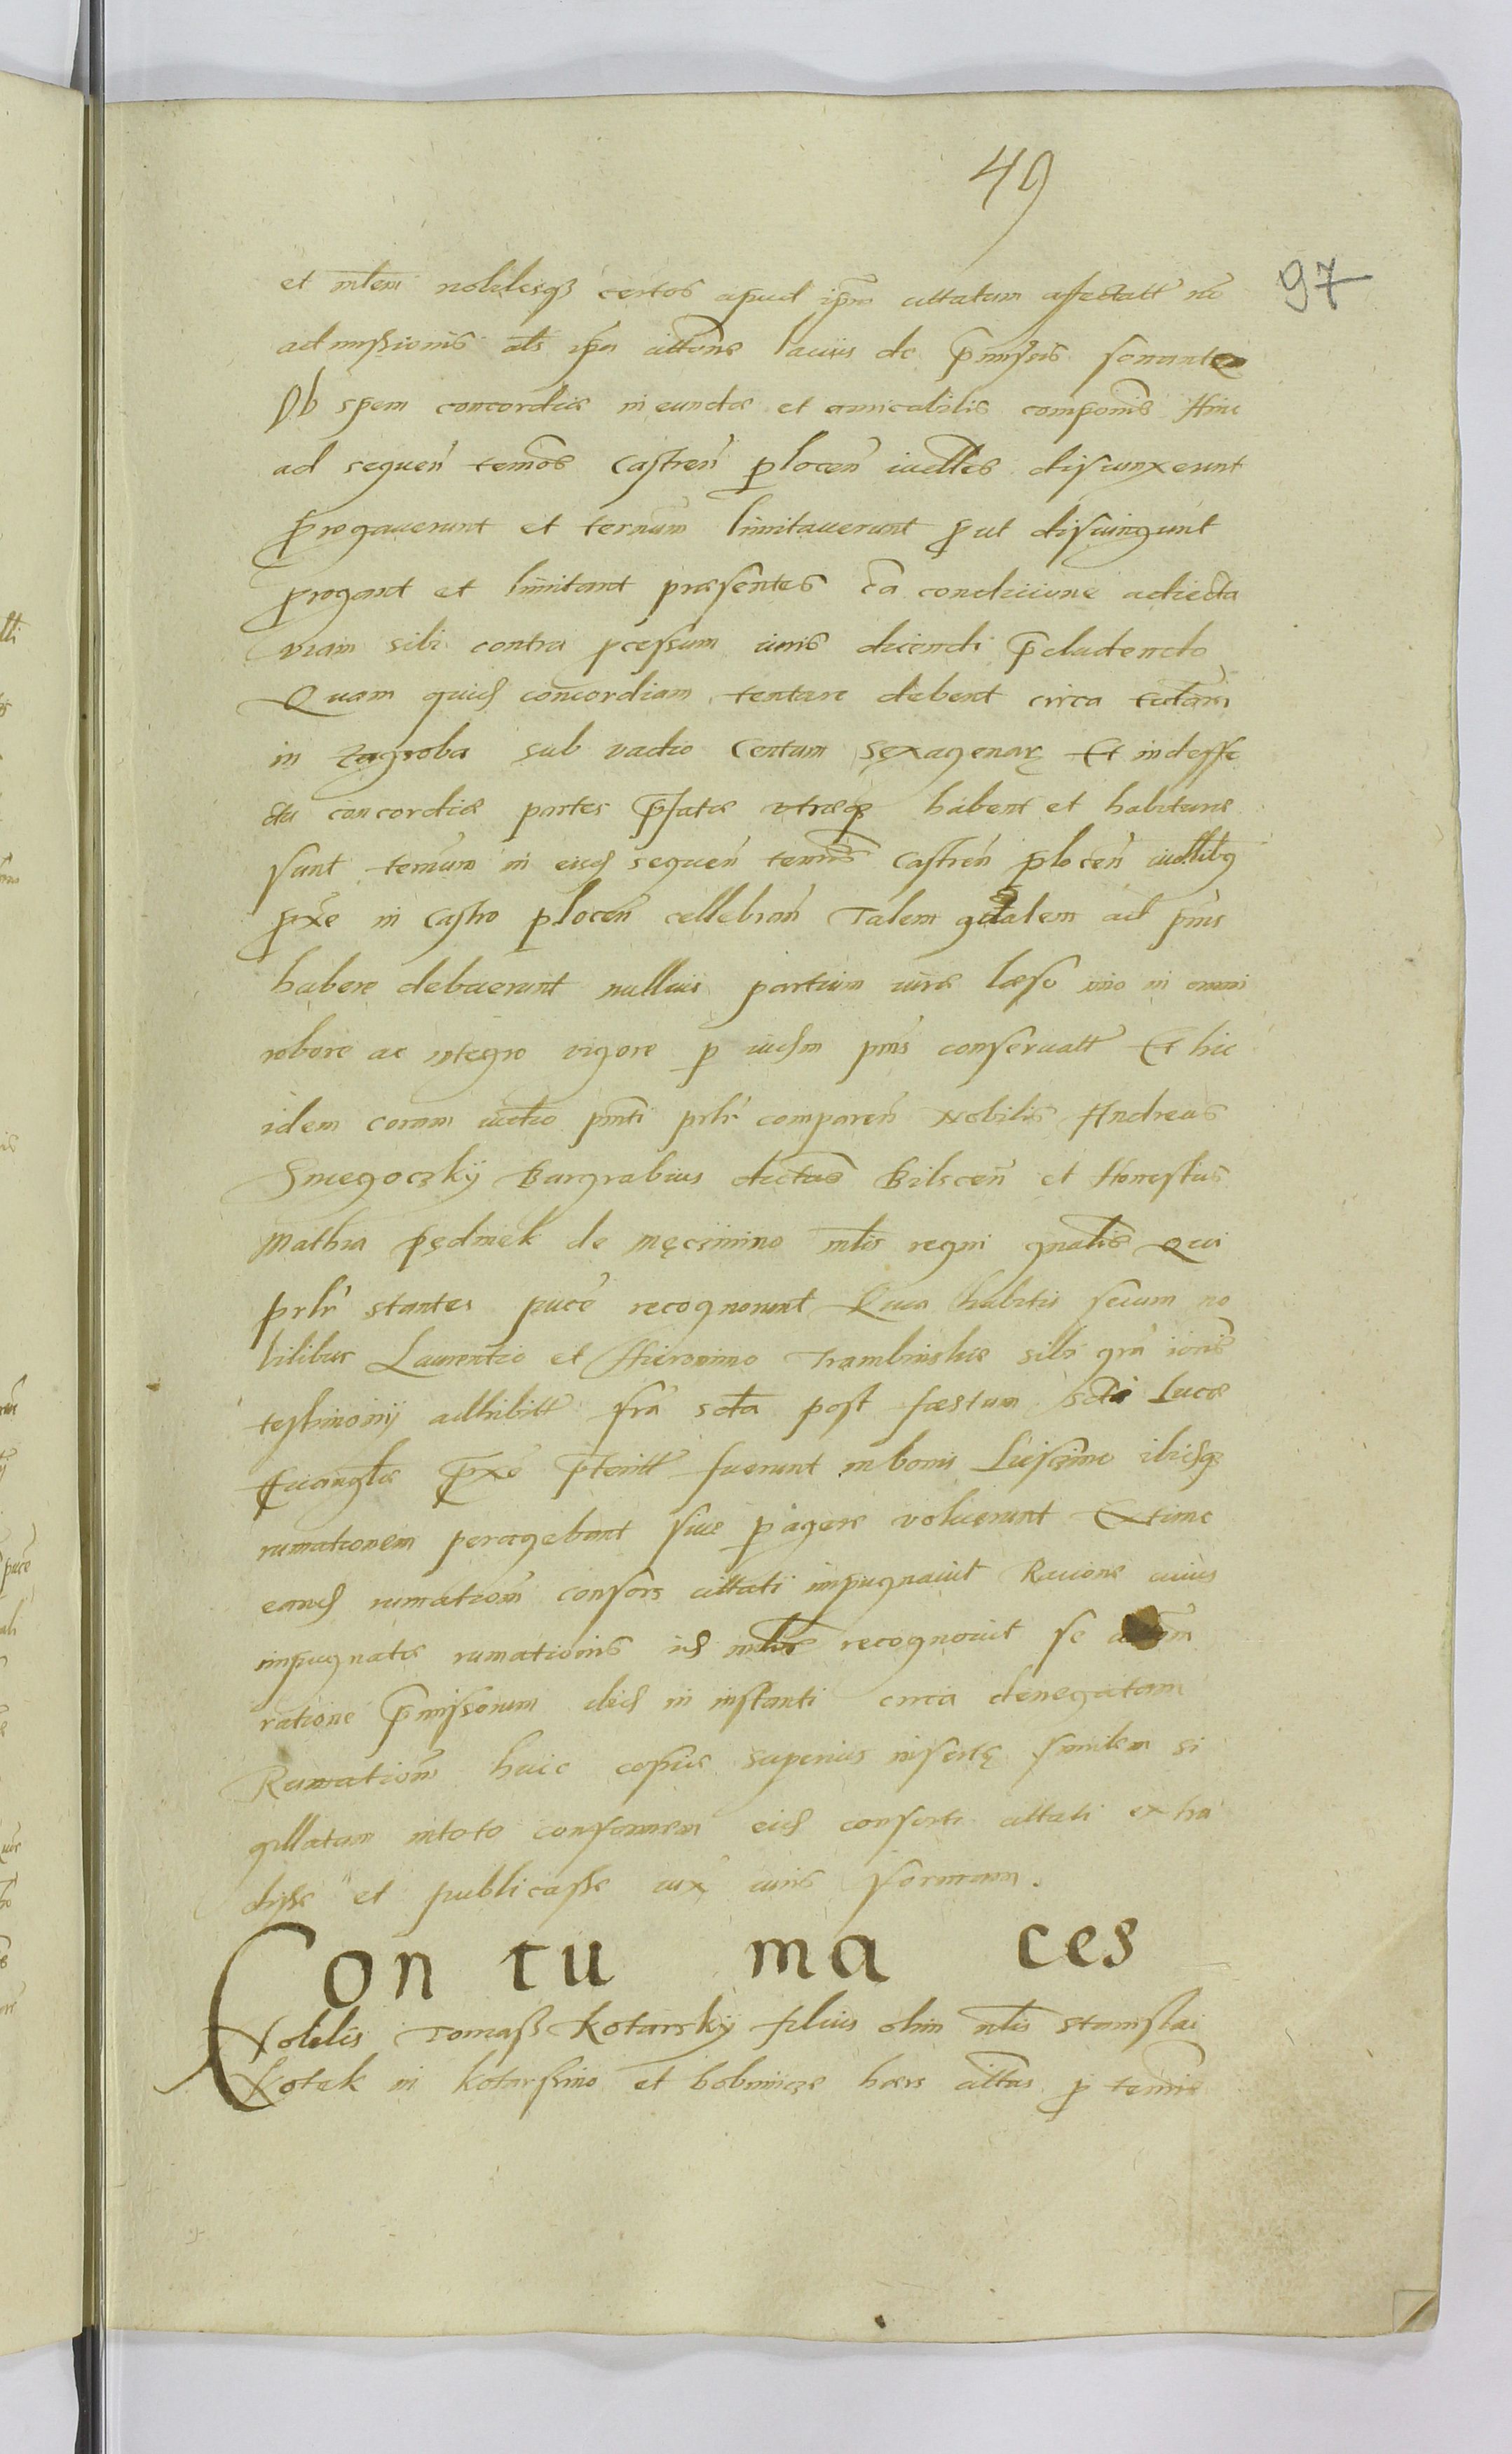 49
97
et mlem nobilesq certos apud ipm cittatum affectatt
admissionis als ipa cittone lacius de pmissis sonantem
Ob spem concordiae ineundae et amicabilis componis Hinc
ad sequen temos Castren plocen iudlles disiunxerunt
progaverunt et termum limitaverunt put disiungunt
progant et limitant praesentes ea condicione adiecta
viam sibi contra pcessum iuris dicendi pcludendo
Quam quid concordiam tentare debent circa
in zagroba sub vadio Centum sexagenar Et in deffe
ctu concordiae partes pfatae utraeq habent et habiturae
sunt termum in eisd sequen temis Castren plocen iudllibq
pxe in Castro plocen cellebran Talem qualem ad pns
habere debuerunt nullius partium iure laeso imo in omni
robore ac integro vigore p iudm pns conservatt Et hic
idem coram iudio pnti prlr comparen Nobilis Andreas
Smegoczkÿ Burgrabius Bilscen et Honestus
Mathia Pędmek de Męczimino mlis regni gnalis Qui
prlr stantes puce recognorunt Quia habitis secum no
bilibus Laurentio et Hieronimo Trambinskie sibi gra ionis
testimonij adhibitt fra scta post faestum scti Lucae
Evanglae pxe pteritt fuerunt in bonis ibidq
rumationem peragebant sive pagere voluerunt Extunc
eand rumationem consors cittati impugnavit Racione cuius
impugnatae rumationis id mlis recognovit se
ratione pmissorum ibid in instanti circa denegatam
Rumationem huic copiae superius insertę similem si
gillatam in toto conformem eid consorti cittati extra
disse et publicasse iux iuris formam.
Con tu ma ces
Nobilis Tomass Kotarskÿ filius olim nlis Stanislai
Kotek in Kotarssino et bobinicze haers cittus p temis